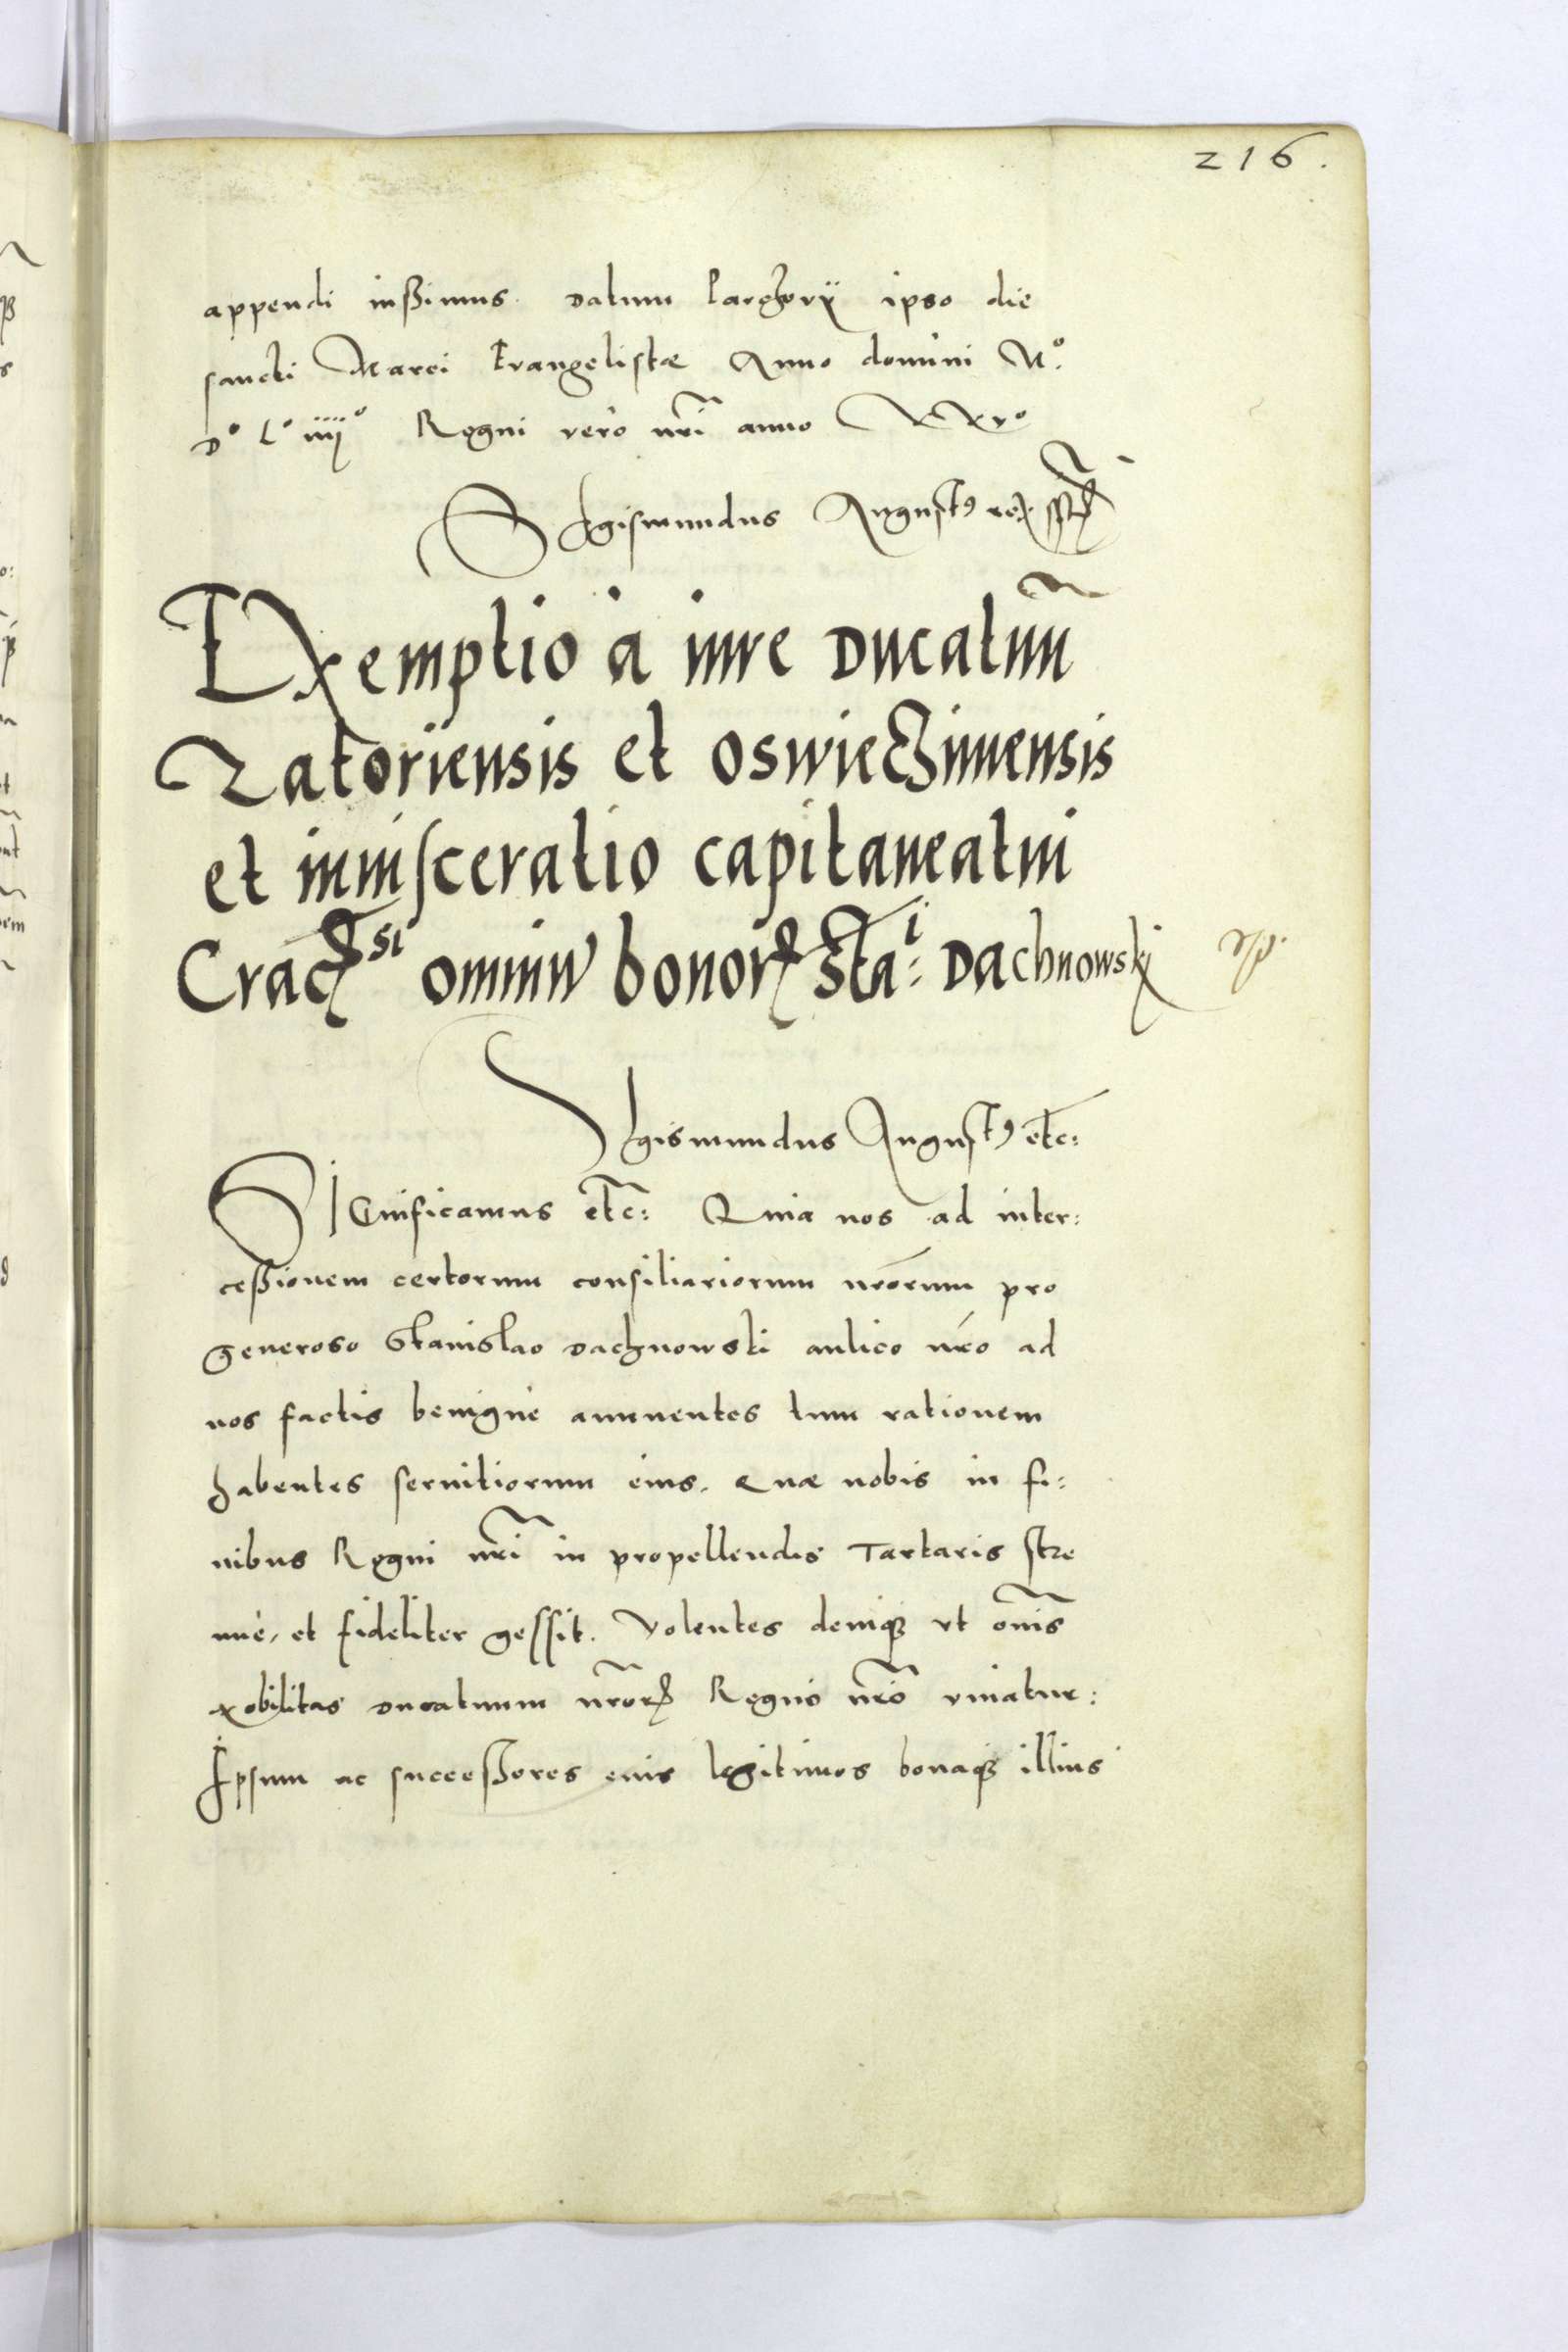 216.
appendi iussimus. Datum Parczovij ipso die
sancti Marci Evangelistæ Anno domini Mº:
Dº Lº iiijº Regni verò nrĩ anno XXvº
Sigismundus August9 rex sst
Exemptio à iure Ducatuũ
Zatoriiensis et oswieczimensis
et inuisceratio capitaneatui
Cracẽsi omniũ bonorꝝ Sta:i Dachnowskj
Sigismundus August9 etc:
SIGnificamus etc: Quia nos ad inter:
cessionem certorum consiliariorum nrõrum pro
generoso Stanislao Dachnowski aulico nrõ ad
nos factis benignè annuentes tum rationem
habentes seruitiorum eius. Quæ nobis in fi:
nibus Regni nrĩ in propellendis Tartaris stre
nuè, et fideliter gessit. Volentes deniqꝫ vt omĩs
Nobilitas Ducatuum nrõrꝝ Regno nrõ vniatur:
Ipsum ac successores eius legitimos bonaqꝫ illius